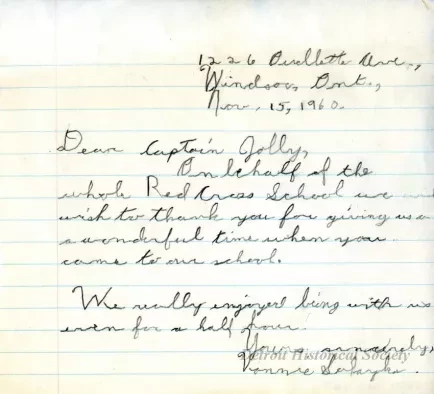 1226 Ouellette Ave.,
Windsor, Ont.,
Nov. 15, 1960.
Dear Captain Jolly,
On behalf of the
whole Red Cross School we
wish to thank you for giving us
a wonderful time when you
came to our school.
We really enjoyed being with us
even for a half hour.
Yours sincerely,
Detroit Historical Society
Vonnie